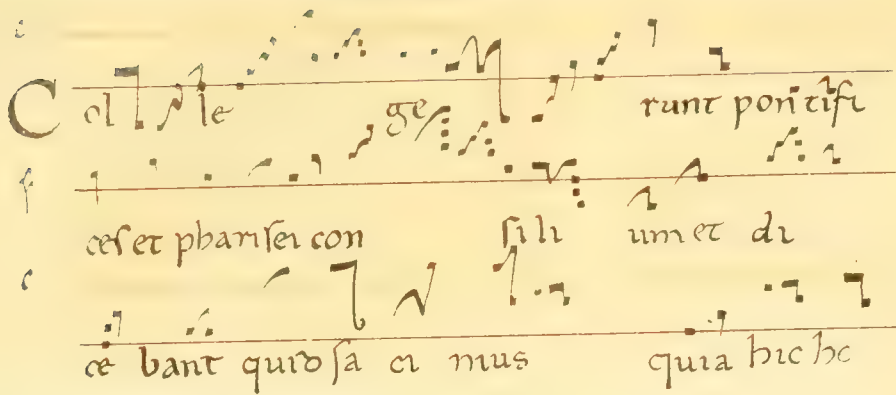 C ol le ge runt pontifi
ceſ et phariſei con ſi li um et di
ce bant quid fa ci mus quia hic hc